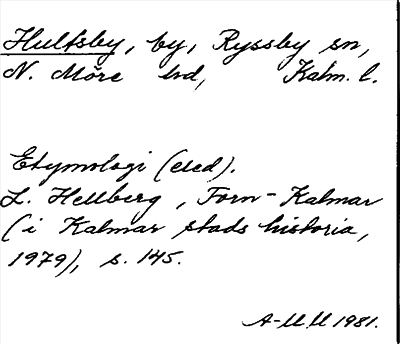 Hultsby, by, Ryssby sn,
N. Möre hd, Kalm. l.
Etymologi (eled).
L. Hellberg, Forn-Kalmar
(i Kalmar stads historia,
1979), s. 145.
A-M M 1981.